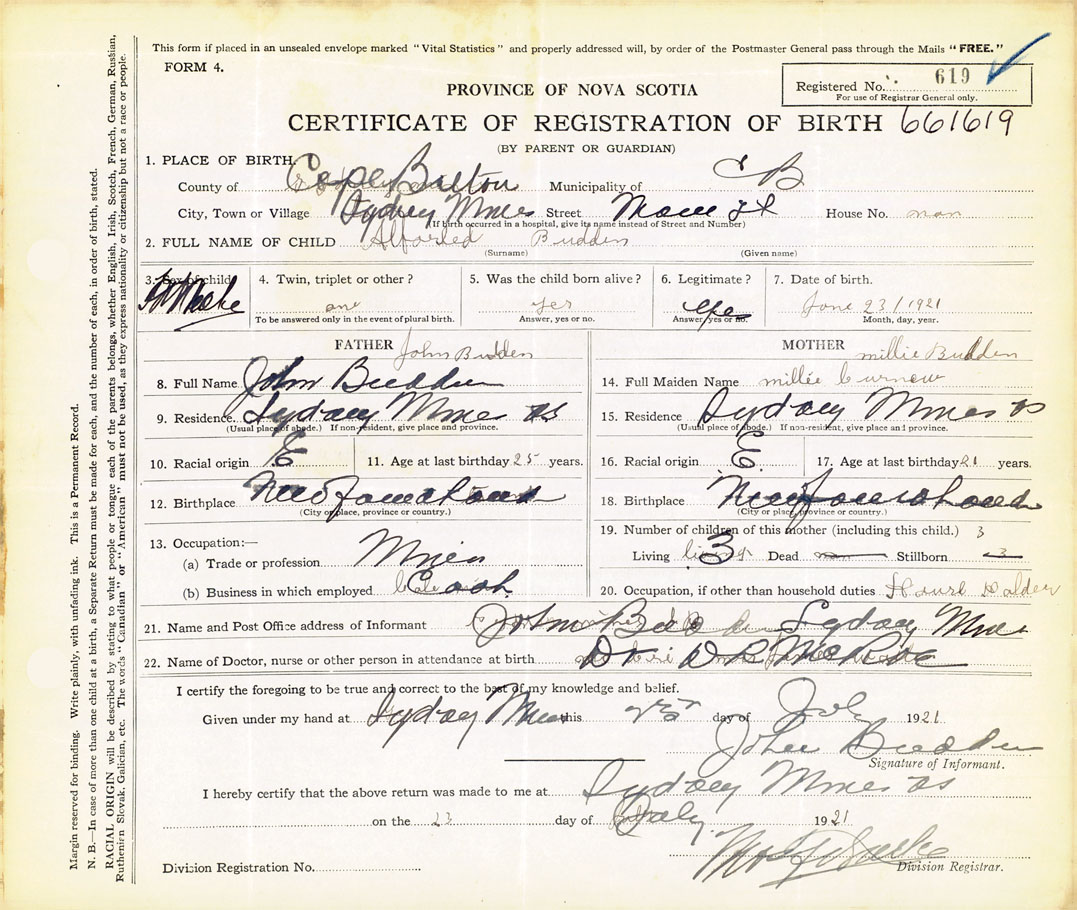 This form if placed in an unsealed envelope marked "Vital Statistics" and properly addressed will, by order of the Postmaster General pass through the Mails "FREE."
FORM 4.
Registered No. 619
For use of Registrar General only.
PROVINCE OF NOVA SCOTIA
CERTIFICATE OF REGISTRATION OF BIRTH 661619
(BY PARENT OR GUARDIAN)
1. PLACE OF BIRTH
County of Cape Breton Municipality of C B
City, Town or Village Sydney Mines Street Main St House No.
(If birth occurred in a hospital, give its name instead of Street and Number)
2. FULL NAME OF CHILD Budden
(Surname) (Given name)
3. Sex of child 4. Twin, triplet or other? 5. Was the child born alive? 6. Legitimate? 7. Date of birth.
Male one yes yes June 23/1921
To be answered only in the event of plural birth. Answer, yes or no. Answer, yes or no. Month, day, year.
FATHER John Budden MOTHER millie Budden
8. Full Name John Budden 14. Full Maiden Name millie
9. Residence Sydney Mines NS 15. Residence Sydney Mines NS
(Usual place of abode.) If non-resident, give place and province. (Usual place of abode.) If non-residence, give place and province.
10. Racial origin E 11. Age at last birthday 25 years. 16. Racial origin E. 17. Age at last birthday 21 years.
12. Birthplace Newfoundland 18. Birthplace Newfoundland
(City or place, province or country.) (City or place, province or country.)
19. Number of children of this mother (including this child.) 3
13. Occupation:—
(a) Trade or profession Miner Living 3 Dead Stillborn
(b) Business in which employed Coal 20. Occupation, if other than household duties
21. Name and Post Office address of Informant John Budden Sydney Mines
22. Name of Doctor, nurse or other person in attendance at birth Dr
I certify the foregoing to be true and correct to the best of my knowledge and belief.
Given under my hand at Sydney Mines this 23 day of July 1921
John Budden
Signature of Informant.
I hereby certify that the above return was made to me at Sydney Mines NS
on the 23 day of July 1921
Division Registration No. Division Registrar.
Margin reserved for binding. Write plainly, with unfading ink. This is a Permanent Record.
N. B.—In case of more than one child at a birth, a Separate Return must be made for each, and the number of each, in order of birth, stated.
RACIAL ORIGIN will be described by stating to what people or tongue each of the parents belongs, whether English, Irish, Scotch, French, German, Russian,
Ruthenirn Slovak, Galician, etc. The words "Canadian" or "American" must not be used, as they express nationality or citizenship but not a race or people.